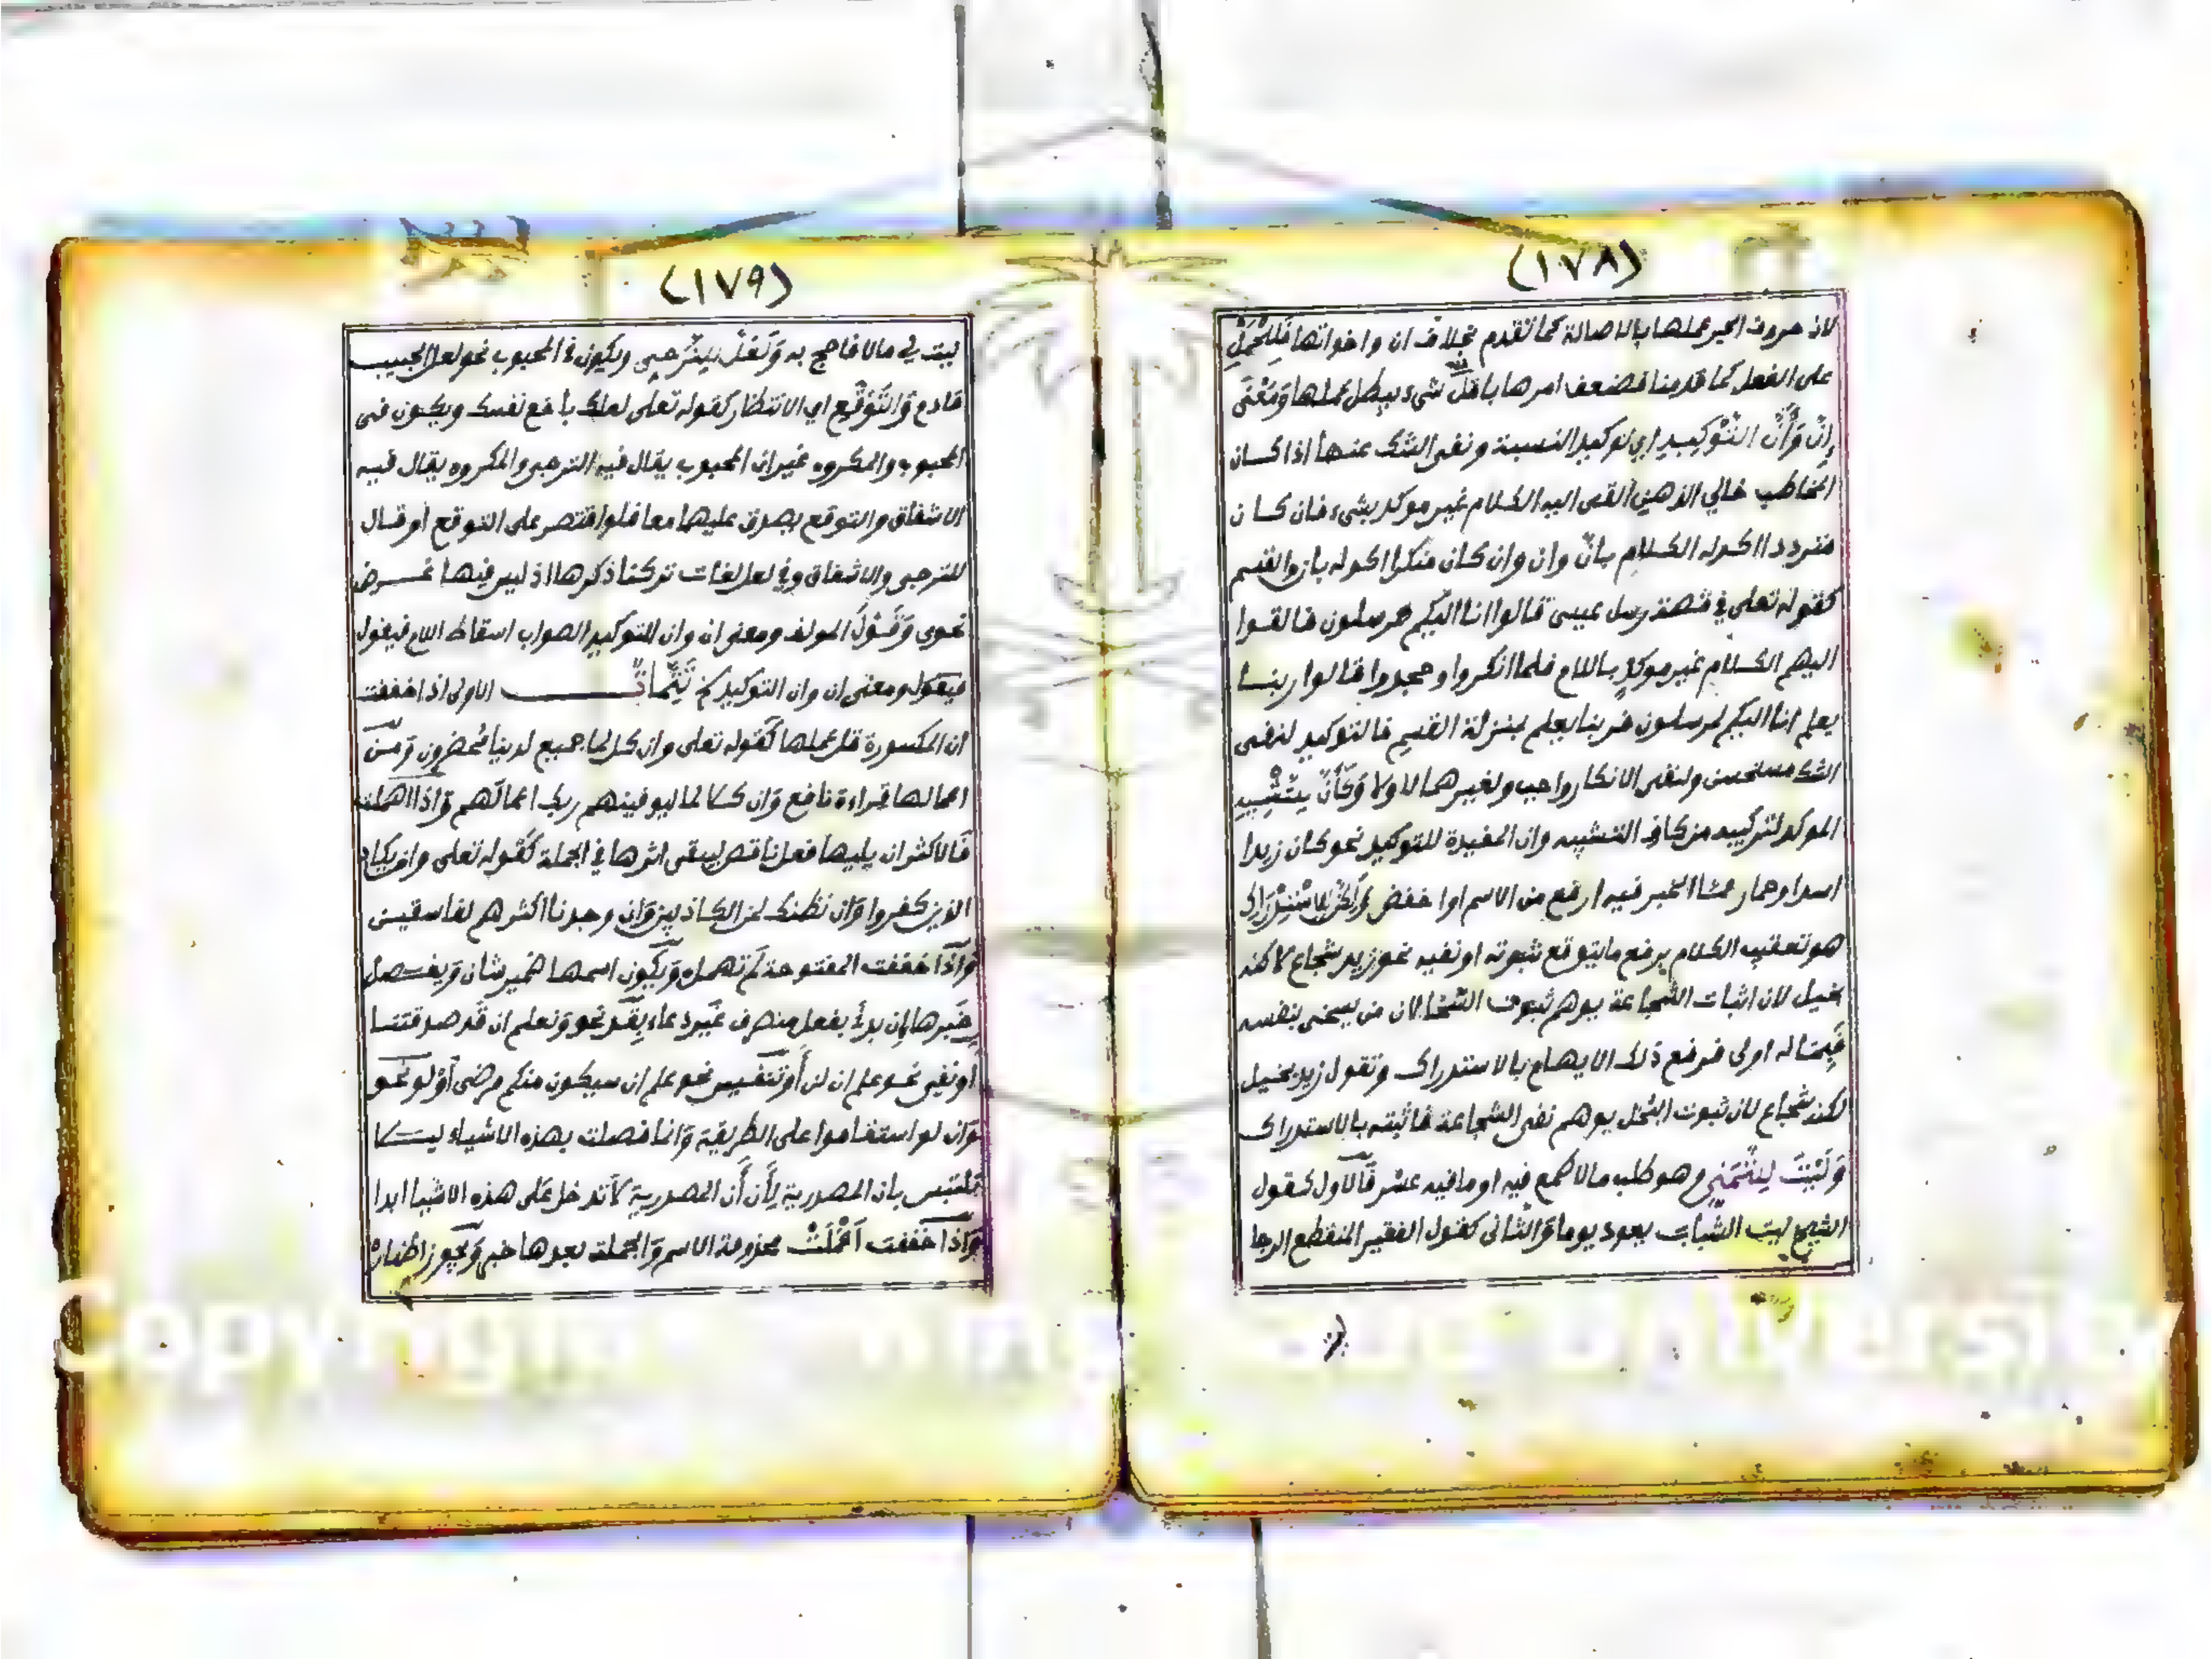 (١٧٨)
لان حروف الجر عملها بالاصالة كما تقدم بخلاف ان واخواتها فللحمل
على الفعل كما قدمنا فضعف امرها باقل شيء يبطل عملها وَمَعْنَى
إِنَّ وَأَنَّ التَّوْكِيدِ اي توكيد النسبة ونفى الشك عنها اذا كان
المخاطب خالي الذهن القى اليه الكلام غير موكد بشيء فان كان
مترددا اكد له الكلام بانّ وان وان كان منكرا اكد له بان والقسم
كقوله تعلى في قصة رسل عيسى قالوا انا اليكم مرسلون فالقوا
اليهم الكلام غير موكد باللام فلما انكروا وجحدوا قالوا ربنا
يعلم انا اليكم لمرسلون فربنا يعلم بمنزلة القسم فالتوكيد لنفى
الشك مستحسن ولنفى الانكار واجب ولغيرهما لا ولا وَكَأَنَّ لِلتَّشْبِيهِ
الموكد لتركيبه من كاف التشبيه وان المفيدة للتوكيد نحو كان زيدا
اسد او حمار مما الخبر فيه ارفع من الاسم او اخفض وَلَكِنَّ لِلِاسْتِدْرَاكِ
هو تعقيب الكلام برفع ما يتوقع ثبوته او نفيه نحو زيد شجاع لاكنه
بخيل لان اثبات الشجاعة يوهم ثبوت السخا لان من يسخى بنفسه
فبماله اولى فرفع ذلك الايهام بالاستدراك وتقول زيد بخيل
لكنه شجاع لان ثبوت البخل يوهم نفى الشجاعة فاثبته بالاستدراك
وَلَيْتَ لِلتَّمَنِّي وهو طلب ما لا طمع فيه او ما فيه عسر فالاول كقول
الشيخ ليت الشباب يعود يوما والثانى كقول الفقير المنقطع الرجا
(١٧٩)
ليت لي مالا فاحج به وَلَعَلَّ لِلتَّرَجِي ويكون في المحبوب نحو لعل الحبيب
قادم وَالتَّوَقُّعِ اي الانتظار كقوله تعلى لعلك باخع نفسك ويكون فى
المحبوب والمكروه غير ان المحبوب يقال فيه الترجى والمكروه يقال فيه
الاشفاق والتوقع يصدق عليهما معا فلو اقتصر على التوقع او قال
للترجى والاشفاق وفي لعل لغات تركنا ذكرها اذ ليس فيها غرض
نحوى وَقَوْلُ المولف ومعنى ان وان للتوكيد الصواب اسقاط اللام فيقول
فيقول ومعنى ان وان التوكيد تَتِمَّاتٌ الاولى اذا خففت
ان المكسورة قل عملها كقوله تعلى وان كل لما جميع لدينا محضرون وَمن
اعمالها قراءة نافع وَان كلا لما ليوفينهم ربك اعمالهم وَاذا اهملت
فالاكثر ان يليها فعل ناقص ليبقى اثرها في الجملة كقوله تعلى وان يكاد
الذين كفروا وَان نظنك لمن الكاذبين وَان وجدنا اكثرهم لفاسقين
وَاذا خففت المفتوحة لم تهمل وَيكون اسمها ضمير شان وَيفصل
خبرها ان بدئ بفعل متصرف غير دعاء بِقَد نحو وَنعلم ان قَد صدقتنا
أو نفي نحو علم ان لن أَو تنفيس نحو علم ان سيكون منكم مرضى أَو لو نحو
وَان لو استقاموا على الطريقة وَانما فصلت بهذه الاشياء ليلا
تلتبس بان المصدرية لِأَن أَن المصدرية لَا تدخل عَلى هذه الاشيا ابدا
وَاذا خففت أُعْمِلَتْ محذوفة الاسم وَالجملة بعدها خبر وَيجوز اظهاره